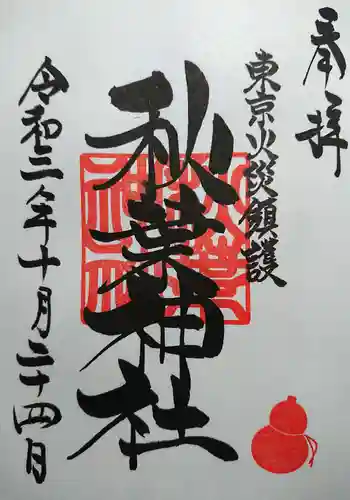 奉拝
東京火災鎮護
秋葉神社
令和二年十月二十四月